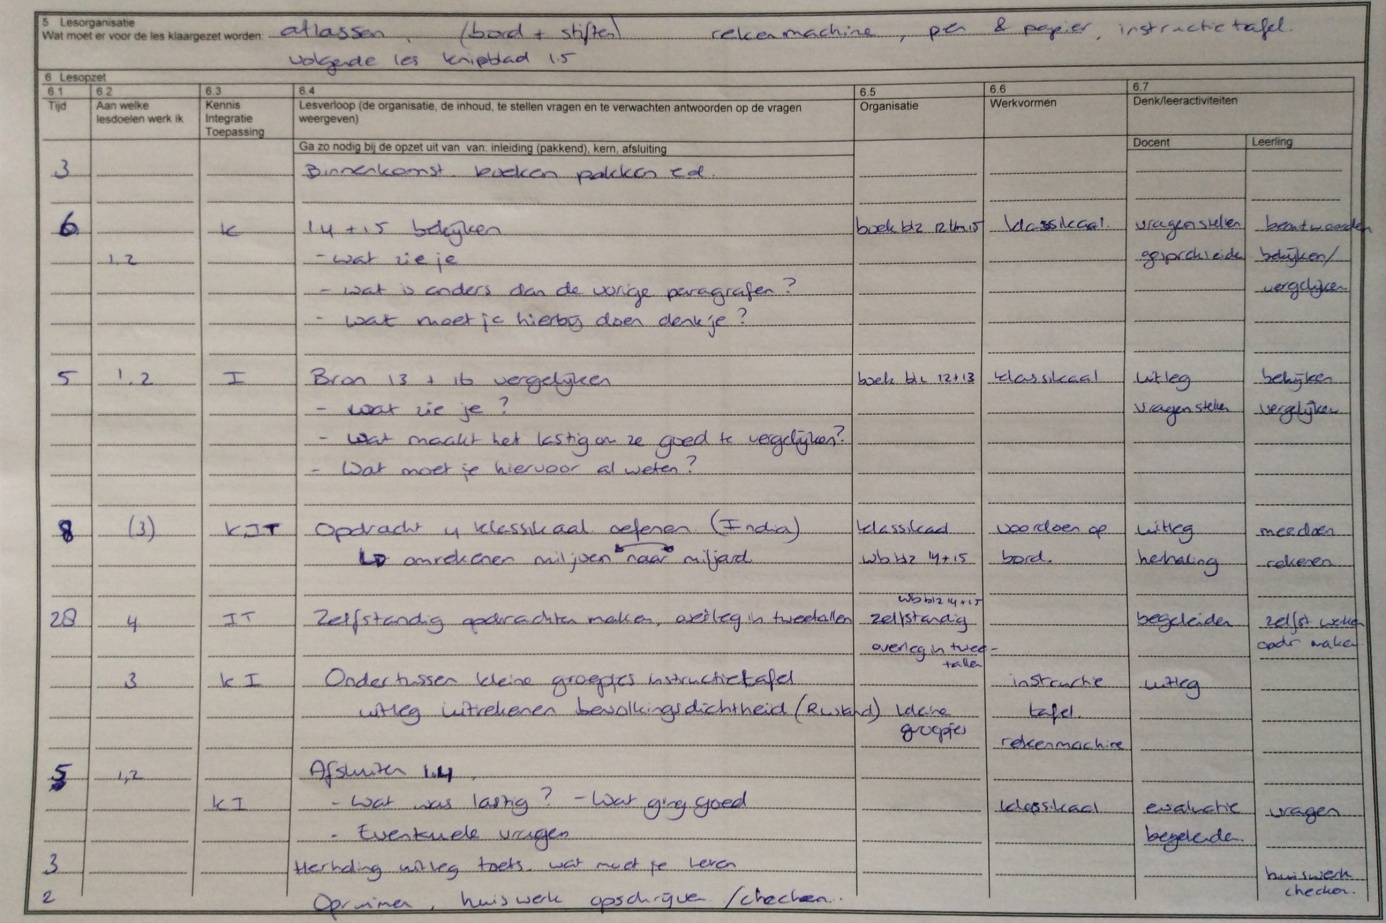 5 Lesorganisatie
Wat moet er voor de les klaargezet worden: atlassen, (bord + stiften) rekenmachine, pen & papier, instructietafel.
volgende les knipblad 1.5
6 Lesopzet
6.1 6.2 6.3 6.4 6.5 6.6 6.7
Tijd Aan welke lesdoelen werk ik Kennis Integratie Toepassing Lesverloop (de organisatie, de inhoud, te stellen vragen en te verwachten antwoorden op de vragen weergeven) Organisatie Werkvormen Denk/leeractiviteiten
Ga zo nodig bij de opzet uit van van: inleiding (pakkend), kern, afsluiting Docent Leerling
3 Binnenkomst boeken pakken e.d.
6 K 1.4 + 1.5 bekijken boek blz 12 t/m 15 klassikaal. vragen stellen beantwoorden
1.2 - wat zie je bekijken/
- wat is anders dan de vorige paragrafen? vergelijken
- wat moet je hierbij doen denk je?
5 1.2 I Bron 13 + 16 vergelijken boek blz 12+13 klassikaal uitleg bekijken
- wat zie je? vragen stellen vergelijken
- Wat maakt het lastig om ze goed te vergelijken?
- Wat moet je hiervoor al weten?
8 (3) KIT Opdracht 4 klassikaal oefenen (India) klassikaal voordoen op uitleg meedoen
omrekenen miljoen naar miljard wb blz 14+15 bord. herhaling rekenen
wb blz 14+15
28 4 IT Zelfstandig opdrachten maken, overleg in tweetallen zelfstandig begeleiden zelfst. werken
overleg in twee- opdr maken
tallen
3 K I Ondertussen kleine groepjes instructietafel instructie uitleg
uitleg uitrekenen bevolkingsdichtheid (Rusland) kleine tafel.
groepjes rekenmachine
5 1,2 Afsluiten 1.4
K I - Wat was lastig? - Wat ging goed klassikaal evaluatie vragen
- Eventuele vragen begeleiden.
3 Herhaling uitleg toets. wat moet je leren huiswerk
checken.
2 Opruimen, huiswerk opschrijven /checken..